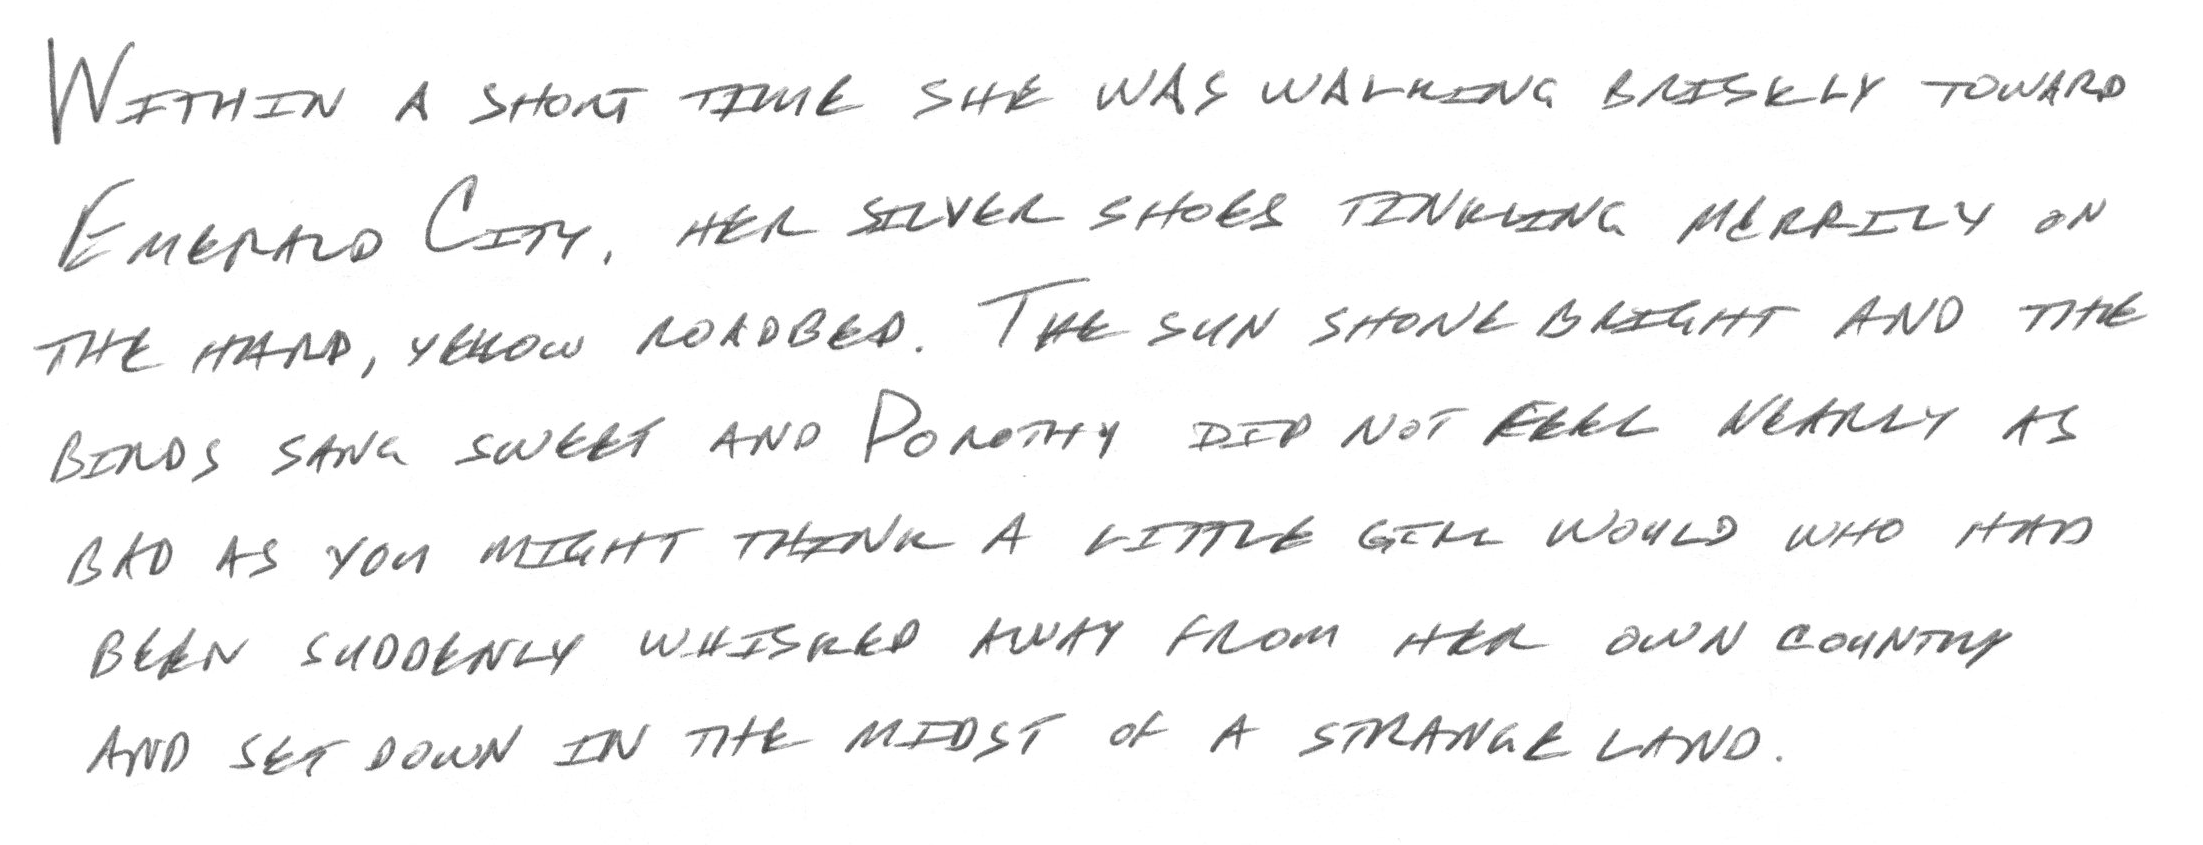 WITHIN A SHORT TIME SHE WAS WALKING BRISKLY TOWARD
EMERALD CITY, HER SILVER SHOES TINKLING MERRILY ON
THE HARD, YELLOW ROADBED. THE SUN SHONE BRIGHT AND THE
BIRDS SANG SWEET AND DOROTHY DID NOT FEEL NEARLY AS
BAD AS YOU MIGHT THINK A LITTLE GIRL WOULD WHO HAD
BEEN SUDDENLY WHISKED AWAY FROM HER OWN COUNTRY
AND SET DOWN IN THE MIDST OF A STRANGE LAND.